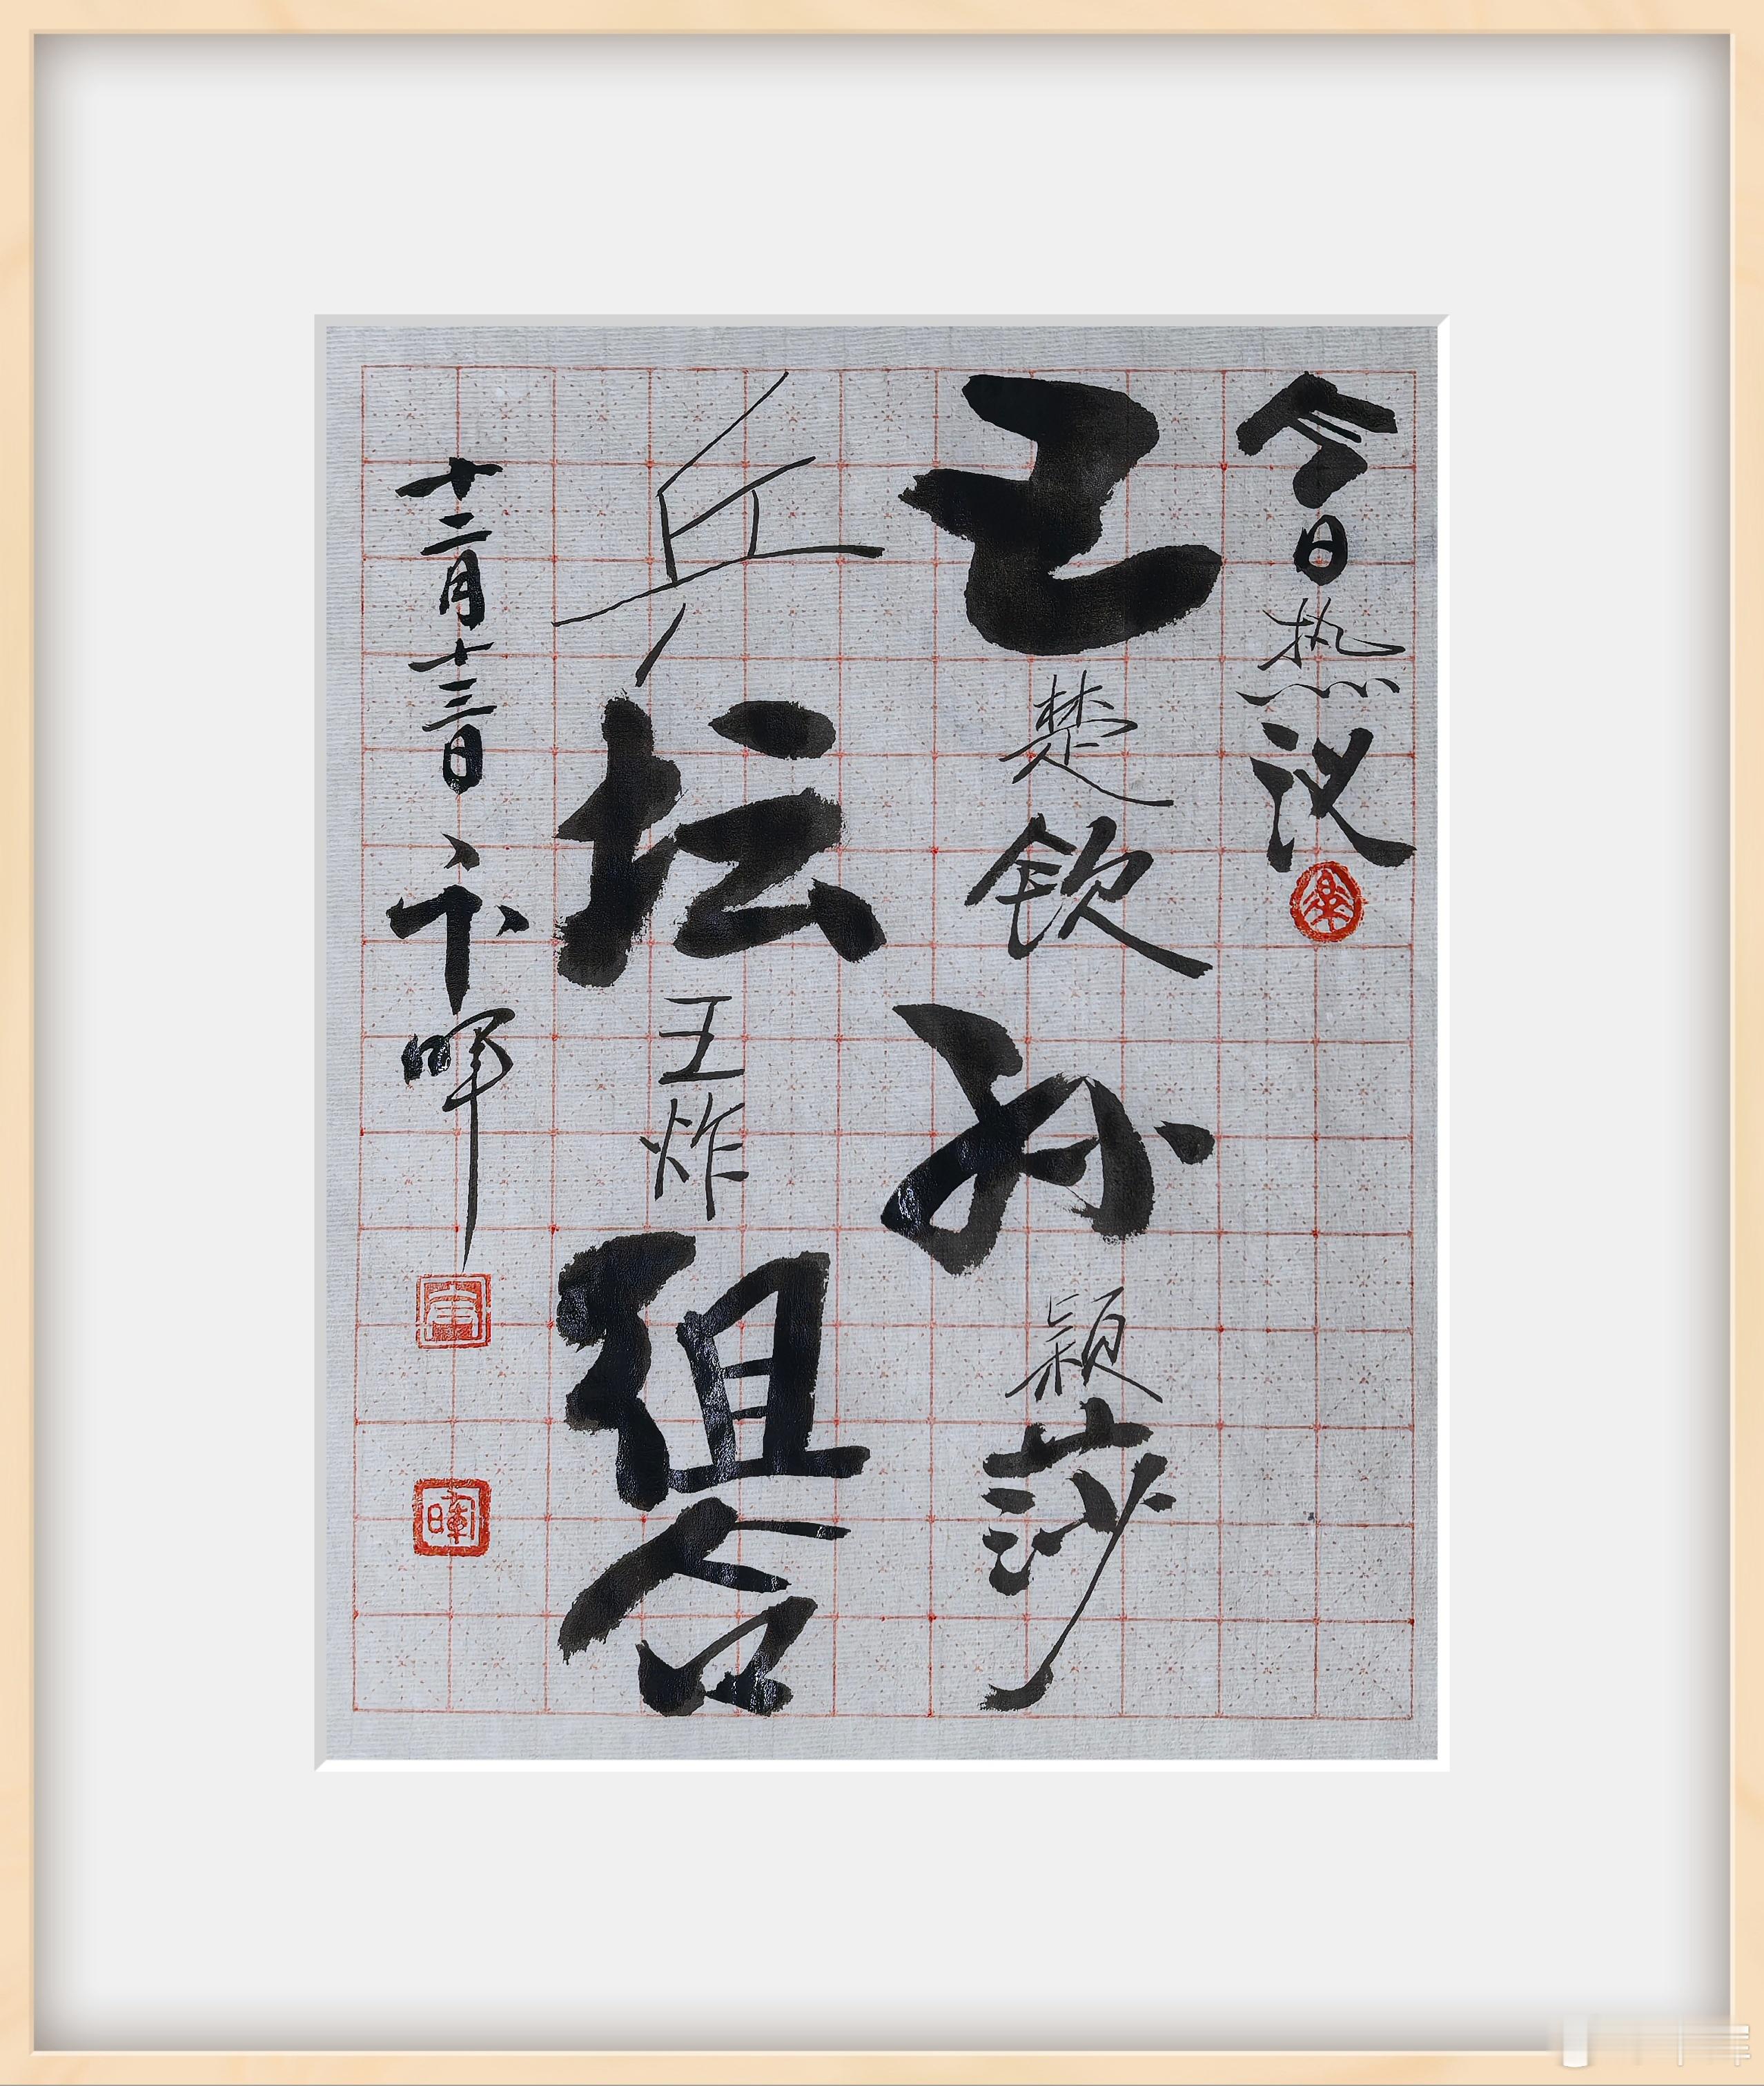 今日热议
王楚钦孙颖莎
乒坛王炸组合
十二月十三日 卞晖
暉